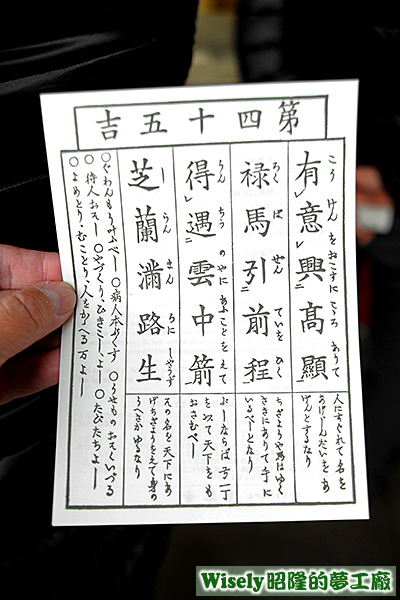 第四十五吉
有意興高顯
こうけんをおこすにこゝろありて
人にすぐれて名を
あげしんだいをあ
げんとするなり
禄馬引前程
ろくばぜんていをひく
ちぎようや馬はゆく
さきにありて手に
いるべしとなり
得遇雲中箭
うんちうのやにあふことをえて
ぶしならば弓一丁
をいて天下をも
おさむべし
芝蘭満路生
しらんまんろにしやうず
天の名を天下にあ
げちぎようをえて身の
うへさかゆるなり
○ぐわんもうかなふべし ○病人本ぷくす ○うせものおそくいづる
○待人おそし ○やづくり、ひきこし、よし ○たびだちよし
○よめとり、むことり、人をかゝへる万よし
Wisely昭隆的夢工廠